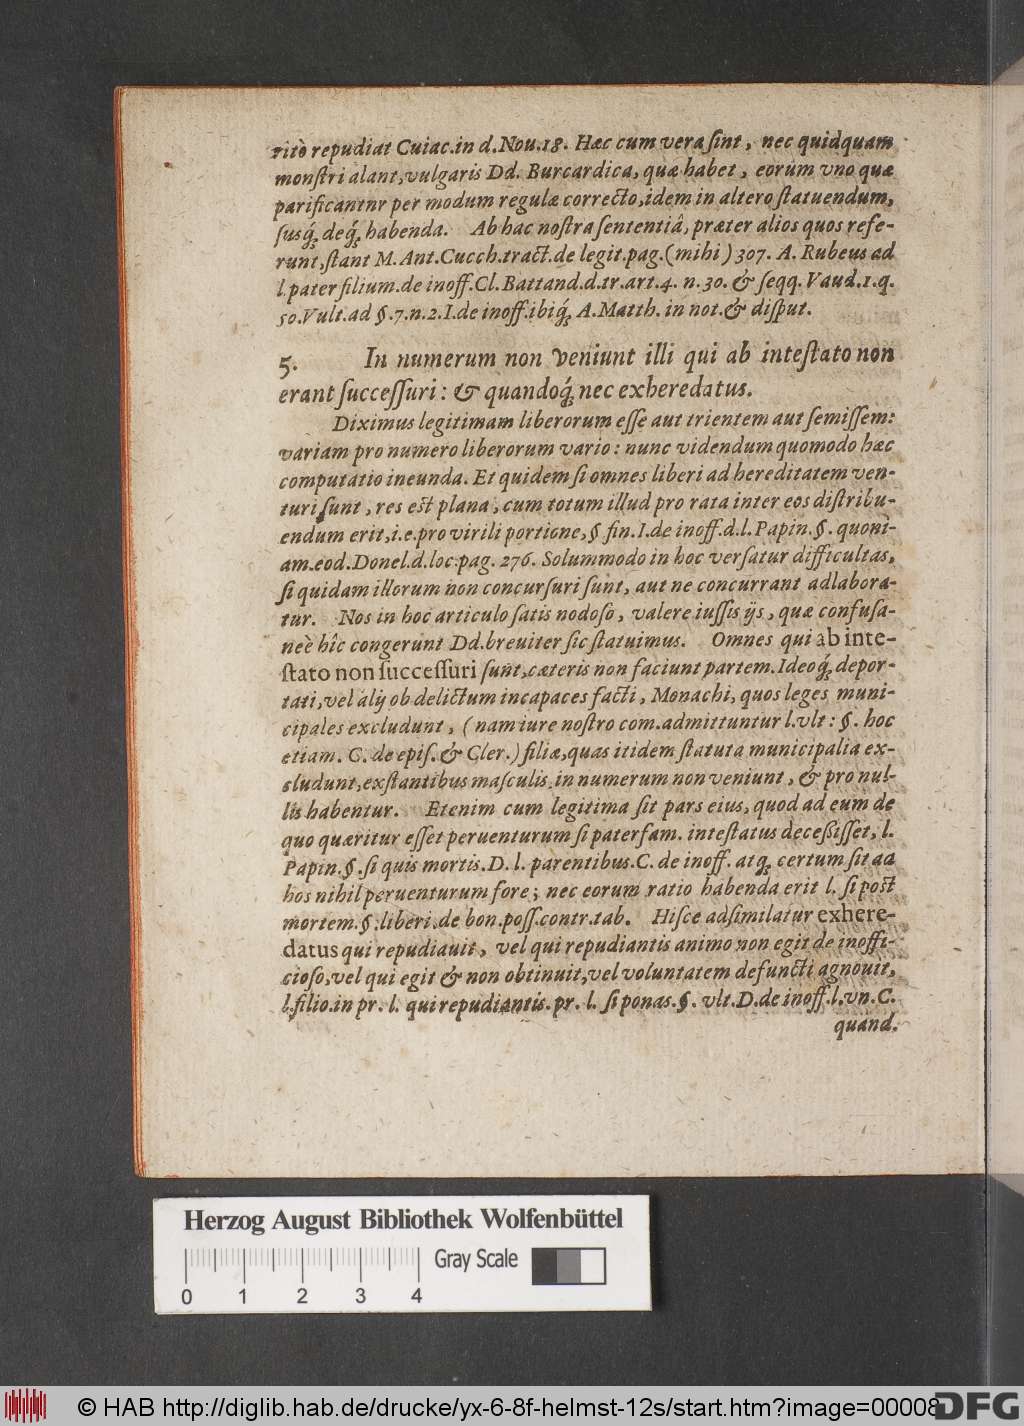 ritò repudiat Cuiac. in d. Nou. 18. Hæc cum vera ſint, nec quidquam
monſtri alant, vulgaris Dd. Burcardica, quæ habet, eorum vno quæ
parificantnr per modum regulæ correcto, idem in altero ſtatuendum,
ſusq́; deq́; habenda. Ab hac noſtra ſententiâ, præter alios quos refe-
runt, ſtant M. Ant. Cucch. tract. de legit. pag. (mihi) 307. A. Rubeus ad
l. pater filium. de inoff. Cl. Battand. d. tr. art. 4. n. 30. & ſeqq. Vaud. 1. q.
50. Vult. ad §. 7. n. 2. I. de inoff. ibiq́; A. Matth. in not. & diſput.
5. In numerum non veniunt illi qui ab inteſtato non
erant ſucceſſuri: & quandoq́; nec exheredatus.
Diximus legitimam liberorum eſſe aut trientem aut ſemiſſem:
variam pro numero liberorum vario: nunc videndum quomodo hæc
computatio ineunda. Et quidem ſi omnes liberi ad hereditatem ven-
turi ſunt, res eſt plana, cum totum illud pro rata inter eos diſtribu-
endum erit, i.e. pro virili portione, § fin. I. de inoff. d. l. Papin. §. quoni-
am. eod. Donel. d. loc. pag. 276. Solummodo in hoc verſatur difficultas,
ſi quidam illorum non concurſuri ſunt, aut ne concurrant adlabora-
tur. Nos in hoc articulo ſatis nodoſo, valere iuſſis ijs, quæ confuſa-
neè hîc congerunt Dd. breuiter ſic ſtatuimus. Omnes qui ab inte-
ſtato non ſucceſſuri ſunt, cæteris non faciunt partem. Ideoq́; depor-
tati, vel alij ob delictum incapaces facti, Monachi, quos leges muni-
cipales excludunt, (nam iure noſtro com. admittuntur l. vlt: §. hoc
etiam. C. de epiſ. & Cler.) filiæ, quas itidem ſtatuta municipalia ex-
cludunt, exſtantibus maſculis, in numerum non veniunt, & pro nul-
lis habentur. Etenim cum legitima ſit pars eius, quod ad eum de
quo quæritur eſſet peruenturum ſi paterfam. inteſtatus deceßiſſet, l.
Papin. §. ſi quis mortis. D. l. parentibus. C. de inoff. atq́; certum ſit ad
hos nihil peruenturum fore; nec eorum ratio habenda erit l. ſi poſt
mortem. §. liberi. de bon. poſſ. contr. tab. Hiſce adſimilatur exhere-
datus qui repudiauit, vel qui repudiantis animo non egit de inoffi-
cioſo, vel qui egit & non obtinuit, vel voluntatem defuncti agnouit,
l. filio. in pr. l. qui repudiantis. pr. l. ſi ponas. §. vlt. D. de inoff. l. vn. C.
quand.
Herzog August Bibliothek Wolfenbüttel
Gray Scale
0 1 2 3 4
© HAB http://diglib.hab.de/drucke/yx-6-8f-helmst-12s/start.htm?image=00008
DFG